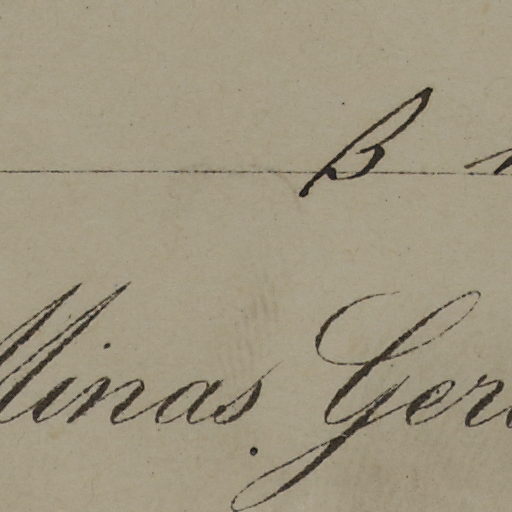 B
Minas Ger